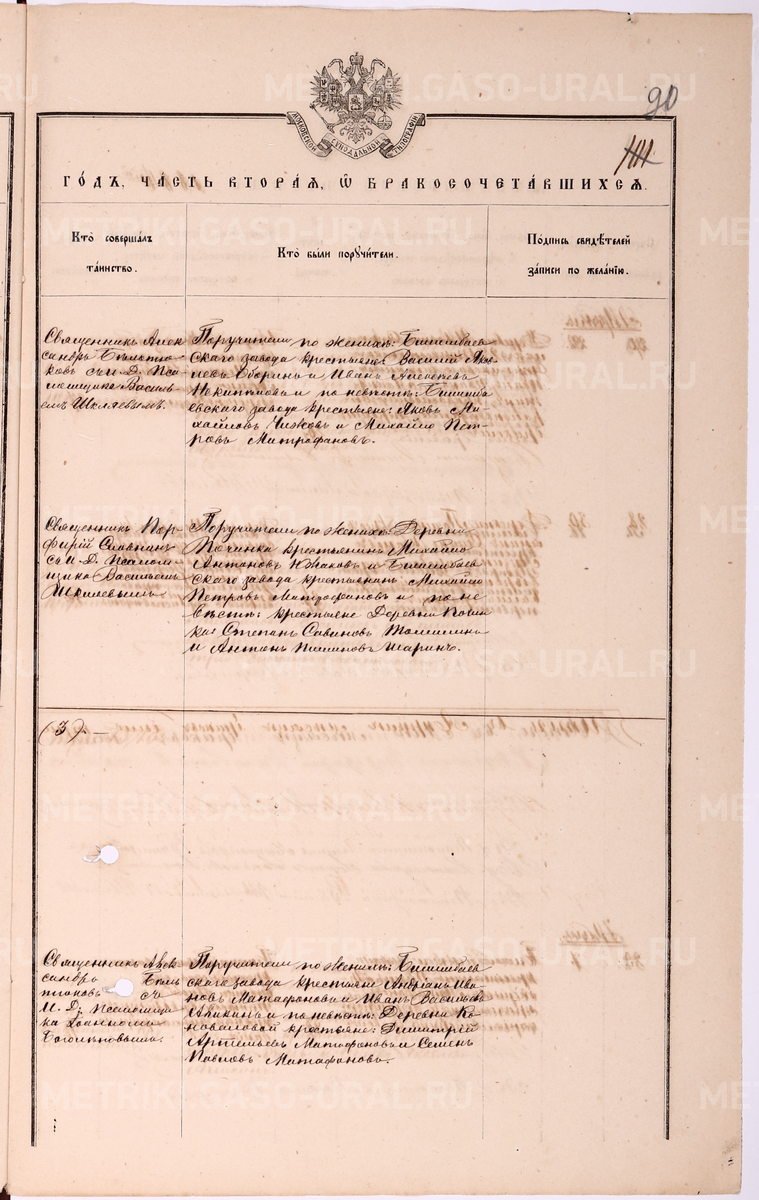 90
МОСКОВСКОЙ СѴНОДАЛЬНОЙ ТИПОГРАФІИ
ГО́ДЪ, ЧА́СТЬ ВТОРА́Я, Ѡ҆ БРАКОСОЧЕТА́ВШИХСЯ.
Кто̀ соверша́лъ
та́инство.
Кто̀ бы́ли поручи́тели.
По́дпись свидѣ́телей
за́писи по жела́нїю.
Священникъ Алек-
сандръ
ковъ съ И. Д. Пса-
ломщика Василь-
емъ Шкляевымъ.
Поручители по женихѣ: Бисимбаев-
скаго завода крестьяне: Василій Яко-
влевъ и Иванъ
и по невѣстѣ: Бисимба-
евскаго завода крестьяне: Яковъ Ми-
хайловъ Чижовъ и Михайло Пет-
ровъ Митрофановъ.
Священникъ Пор-
фирій Славнинъ
съ И. Д. Псалом-
щика Васильемъ
Шкляевымъ
Поручители по женихѣ: Деревни
Починка крестьянинъ Михайло
Антоновъ Южаковъ и Бисимбаев-
скаго завода крестьянинъ Михайло
Петровъ Митрофановъ и по не-
вѣстѣ: крестьяне Деревни Почин-
ка Степанъ Савиновъ
и Антонъ Шаринъ.
(3) —
Священникъ Алек-
сандръ
съ
И. Д. Псаломщи-
ка Іоанномъ
Поручители по женихѣ: Бисимбаев-
скаго завода крестьяне Андріанъ Ива-
новъ Матафоновъ и Иванъ Васильевъ
и по невѣстѣ: Деревни Ко-
новаловой крестьяне: Димитрій
Артемьевъ Матафоновъ и Семенъ
Павловъ Матафоновъ.
METRIKI.GASO-URAL.RU